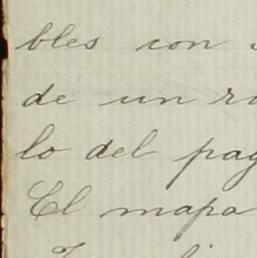 bles con
de un
lo del pag
El mapa